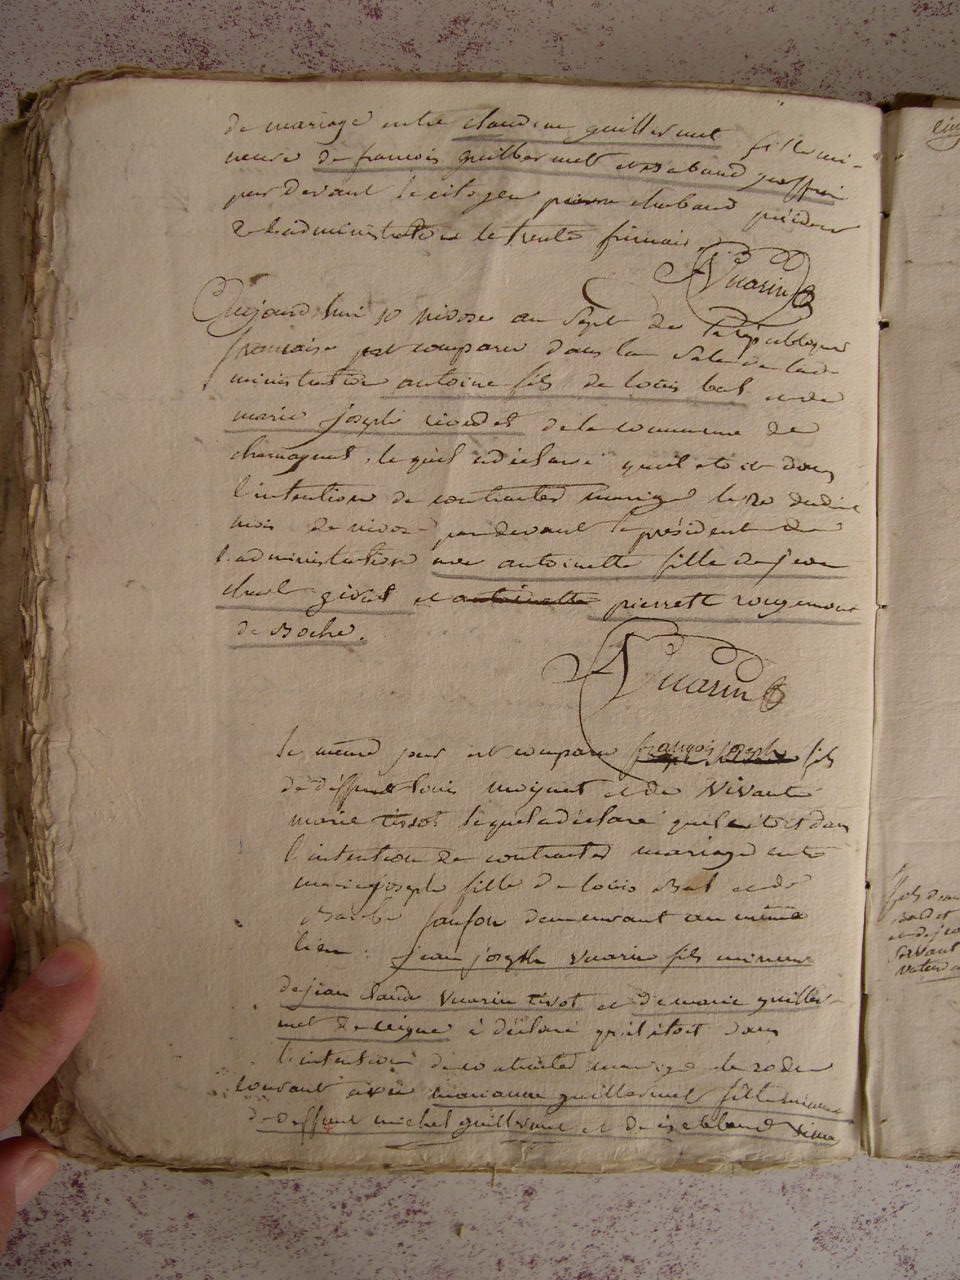 de mariage entre claudine guillermet fille mi-
neure de francois guillermet et isabaud geoffrai
par devant le citoyen pierre chabaud président
de l'administration le trente frimair.
Vuarin
Aujourd'hui 10 nivose an sept de la république
francaise est comparu dans la sale de lad-
ministration antoine fils de louis bal et de
marie joseph de la commune de
le quel a déclaré qu'il etoit dans
l'intention de contracter mariage le 20 dudit
mois de nivose par devant le président de
l'administration avec antoinette fille de jean
charl girod et antoinette pierrette rougemont
de Roche.
Vuarin
le meme jour est comparu françois joseph fils
de deffunt louis moynet et de vivante
marie tissot lequel a déclaré quil etoit dans
l'intention de contracter mariage entre
marie joseph fille de louis Bal et de
demeurant au même
lieu. jean joseph vuarin fils mineur
de jean claude vuarin tissot et de marie guiller-
met de à déclaré qu'il étoit dans
l'intention de contracter mariage le 20 du
courant avec marianne guillermet fille mineure
de deffunt michel guillermet et de
fils de
et de
servant